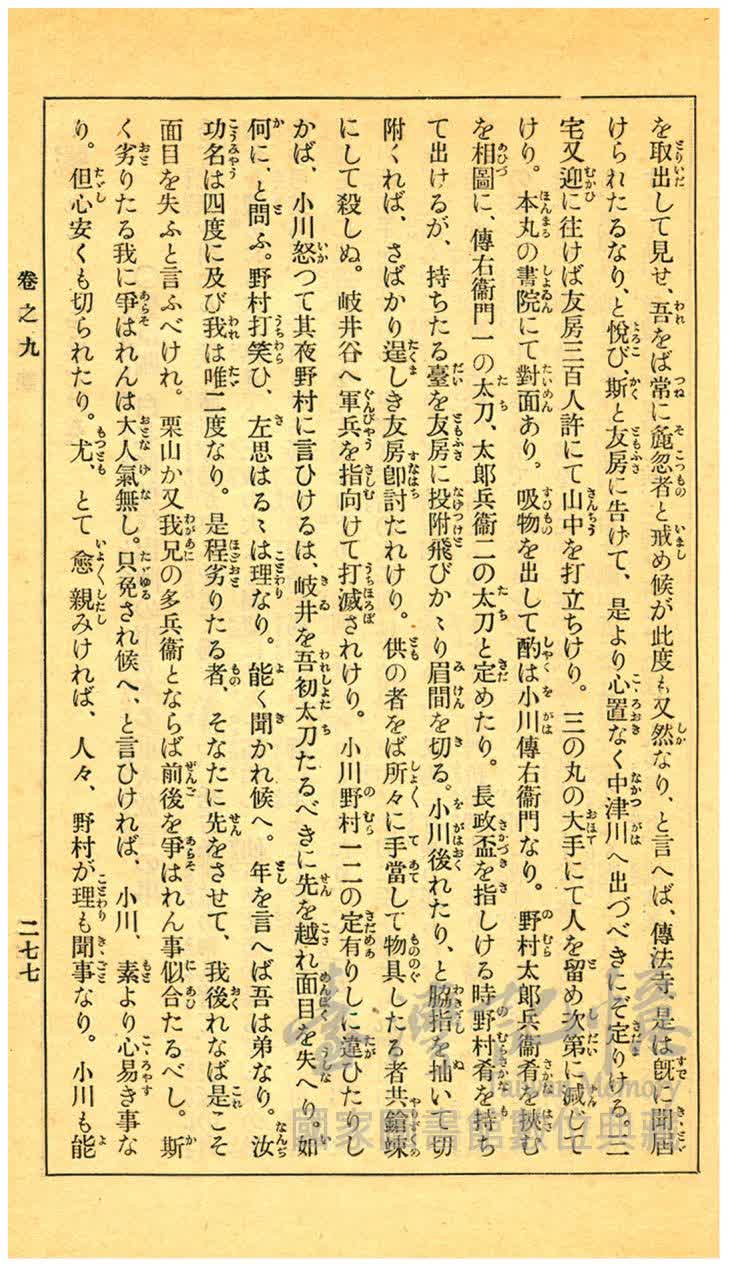 を取出して見せ、吾をば常に麁忽者と戒め候が此度も又然なり、と言へば、傳法寺、是は既に聞屆
けられたるなり、と悅び、斯と友房に告げて、是より心置なく中津川へ出づべきにぞ定りける。三
宅又迎に往けば友房三百人許にて山中を打立ちけり。三の丸の大手にて人を留め次第に減じて
けり。本丸の書院にて對面あり。吸物を出して酌は小川傳右衞門なり。野村太郎兵衞肴を挾む
を相圖に、傳右衞門一の太刀、太郎兵衞二の太刀と定めたり。長政盃を指しける時野村肴を持ち
て出けるが、持ちたる臺を友房に投附飛びかゝり眉間を切る。小川後れたり、と脇指を拔いて切
附くれば、さばかり逞しき友房卽討たれけり。供の者をば所々に手當して物具したる者共鎗竦
にして殺しぬ。岐井谷へ軍兵を指向けて打滅されけり。小川野村一二の定有りしに違ひたりし
かば、小川怒つて其夜野村に言ひけるは、岐井を吾初太刀たるべきに先を越れ面目を失へり。如
何に、と問ふ。野村打笑ひ、左思はるゝは理なり。能く聞かれ候へ。年を言へば吾は弟なり。汝
功名は四度に及び我は唯二度なり。是程劣りたる者、そなたに先をさせて、我後れなば是こそ
面目を失ふと言ふべけれ。栗山か又我兄の多兵衞とならば前後を爭はれん事似合たるべし。斯
く劣りたる我に爭はれんは大人氣無し。只免され候へ、と言ひければ、小川、素より心易き事な
り。但心安くも切られたり。尤、とて愈親みければ、人々、野村が理も聞事なり。小川も能
卷之九
二七七
國家圖書館數位典藏
Taiwan Memory